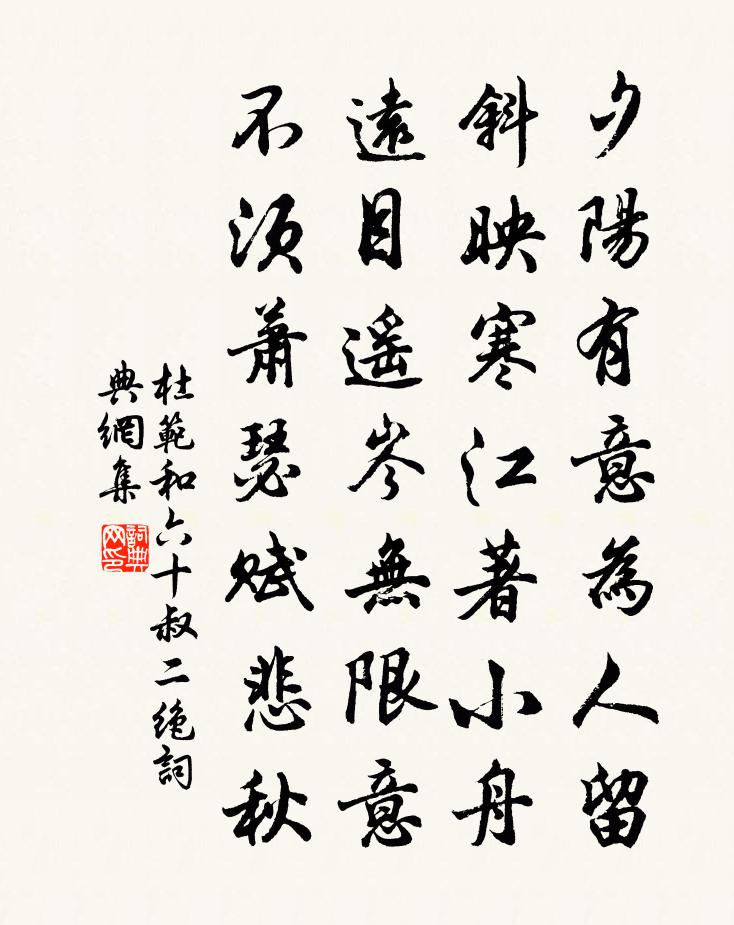 夕陽有意為人留
斜映寒江著小舟
遠目遥岑無限意
不須蕭瑟賦悲秋
杜範和六十叔二絶詞
典網集
詞典
网印